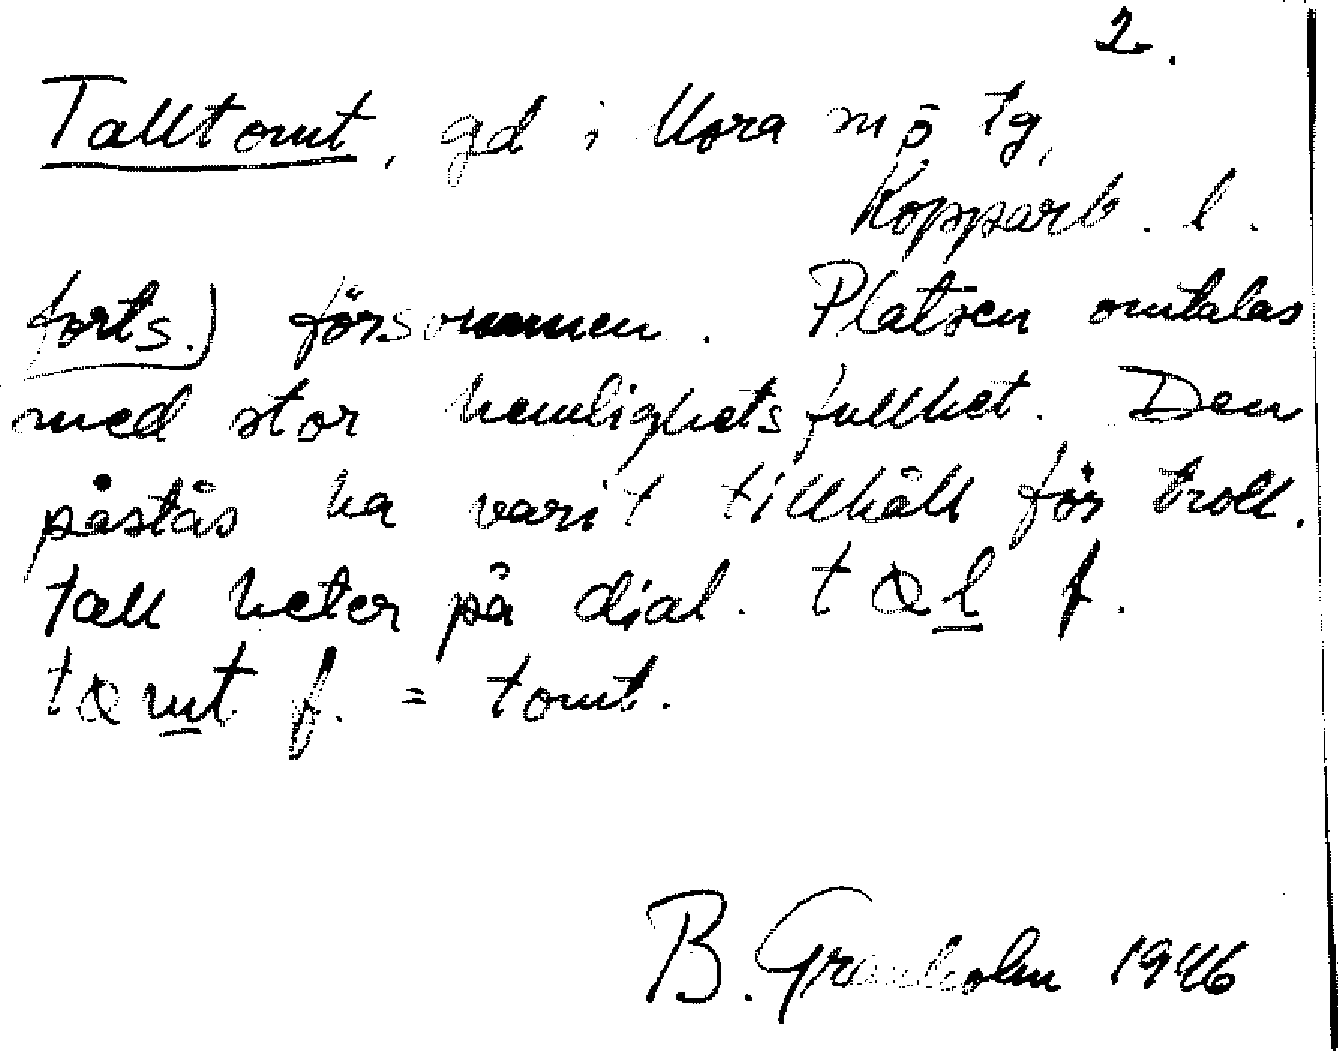 2.
Talltomt, gd i Mora m ö tg,
Kopparb. l.
forts.) försommen. Platsen omtalas
med stor hemlighetsfullhet. Den
påstås ha varit tillhåll för troll.
Tall heter på dial. tɑl f.
tɑmt f. = tomt.
B. Granholm 1946